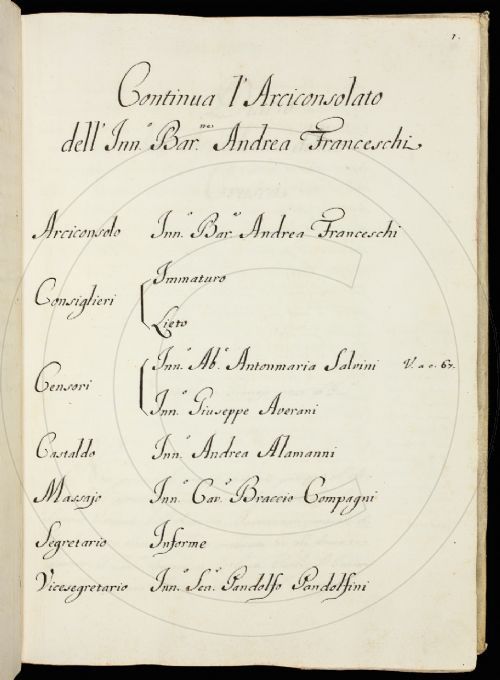 1.
Continua l'Arciconsolato
dell' Inn.º Bar.ne Andrea Franceschi
Arciconsolo Inn.º Bar.º Andrea Franceschi
Consiglieri Immaturo
Lieto
Censori Inn.º Ab.º Antonmaria Salvini V. a c. 67.
Inn.º Giuseppe Averani
Castaldo Inn.º Andrea Alamanni
Massajo Inn.º Cav.º Braccio Compagni
Segretario Informe
Vicesegretario Inn.º Sen.º Pandolfo Pandolfini